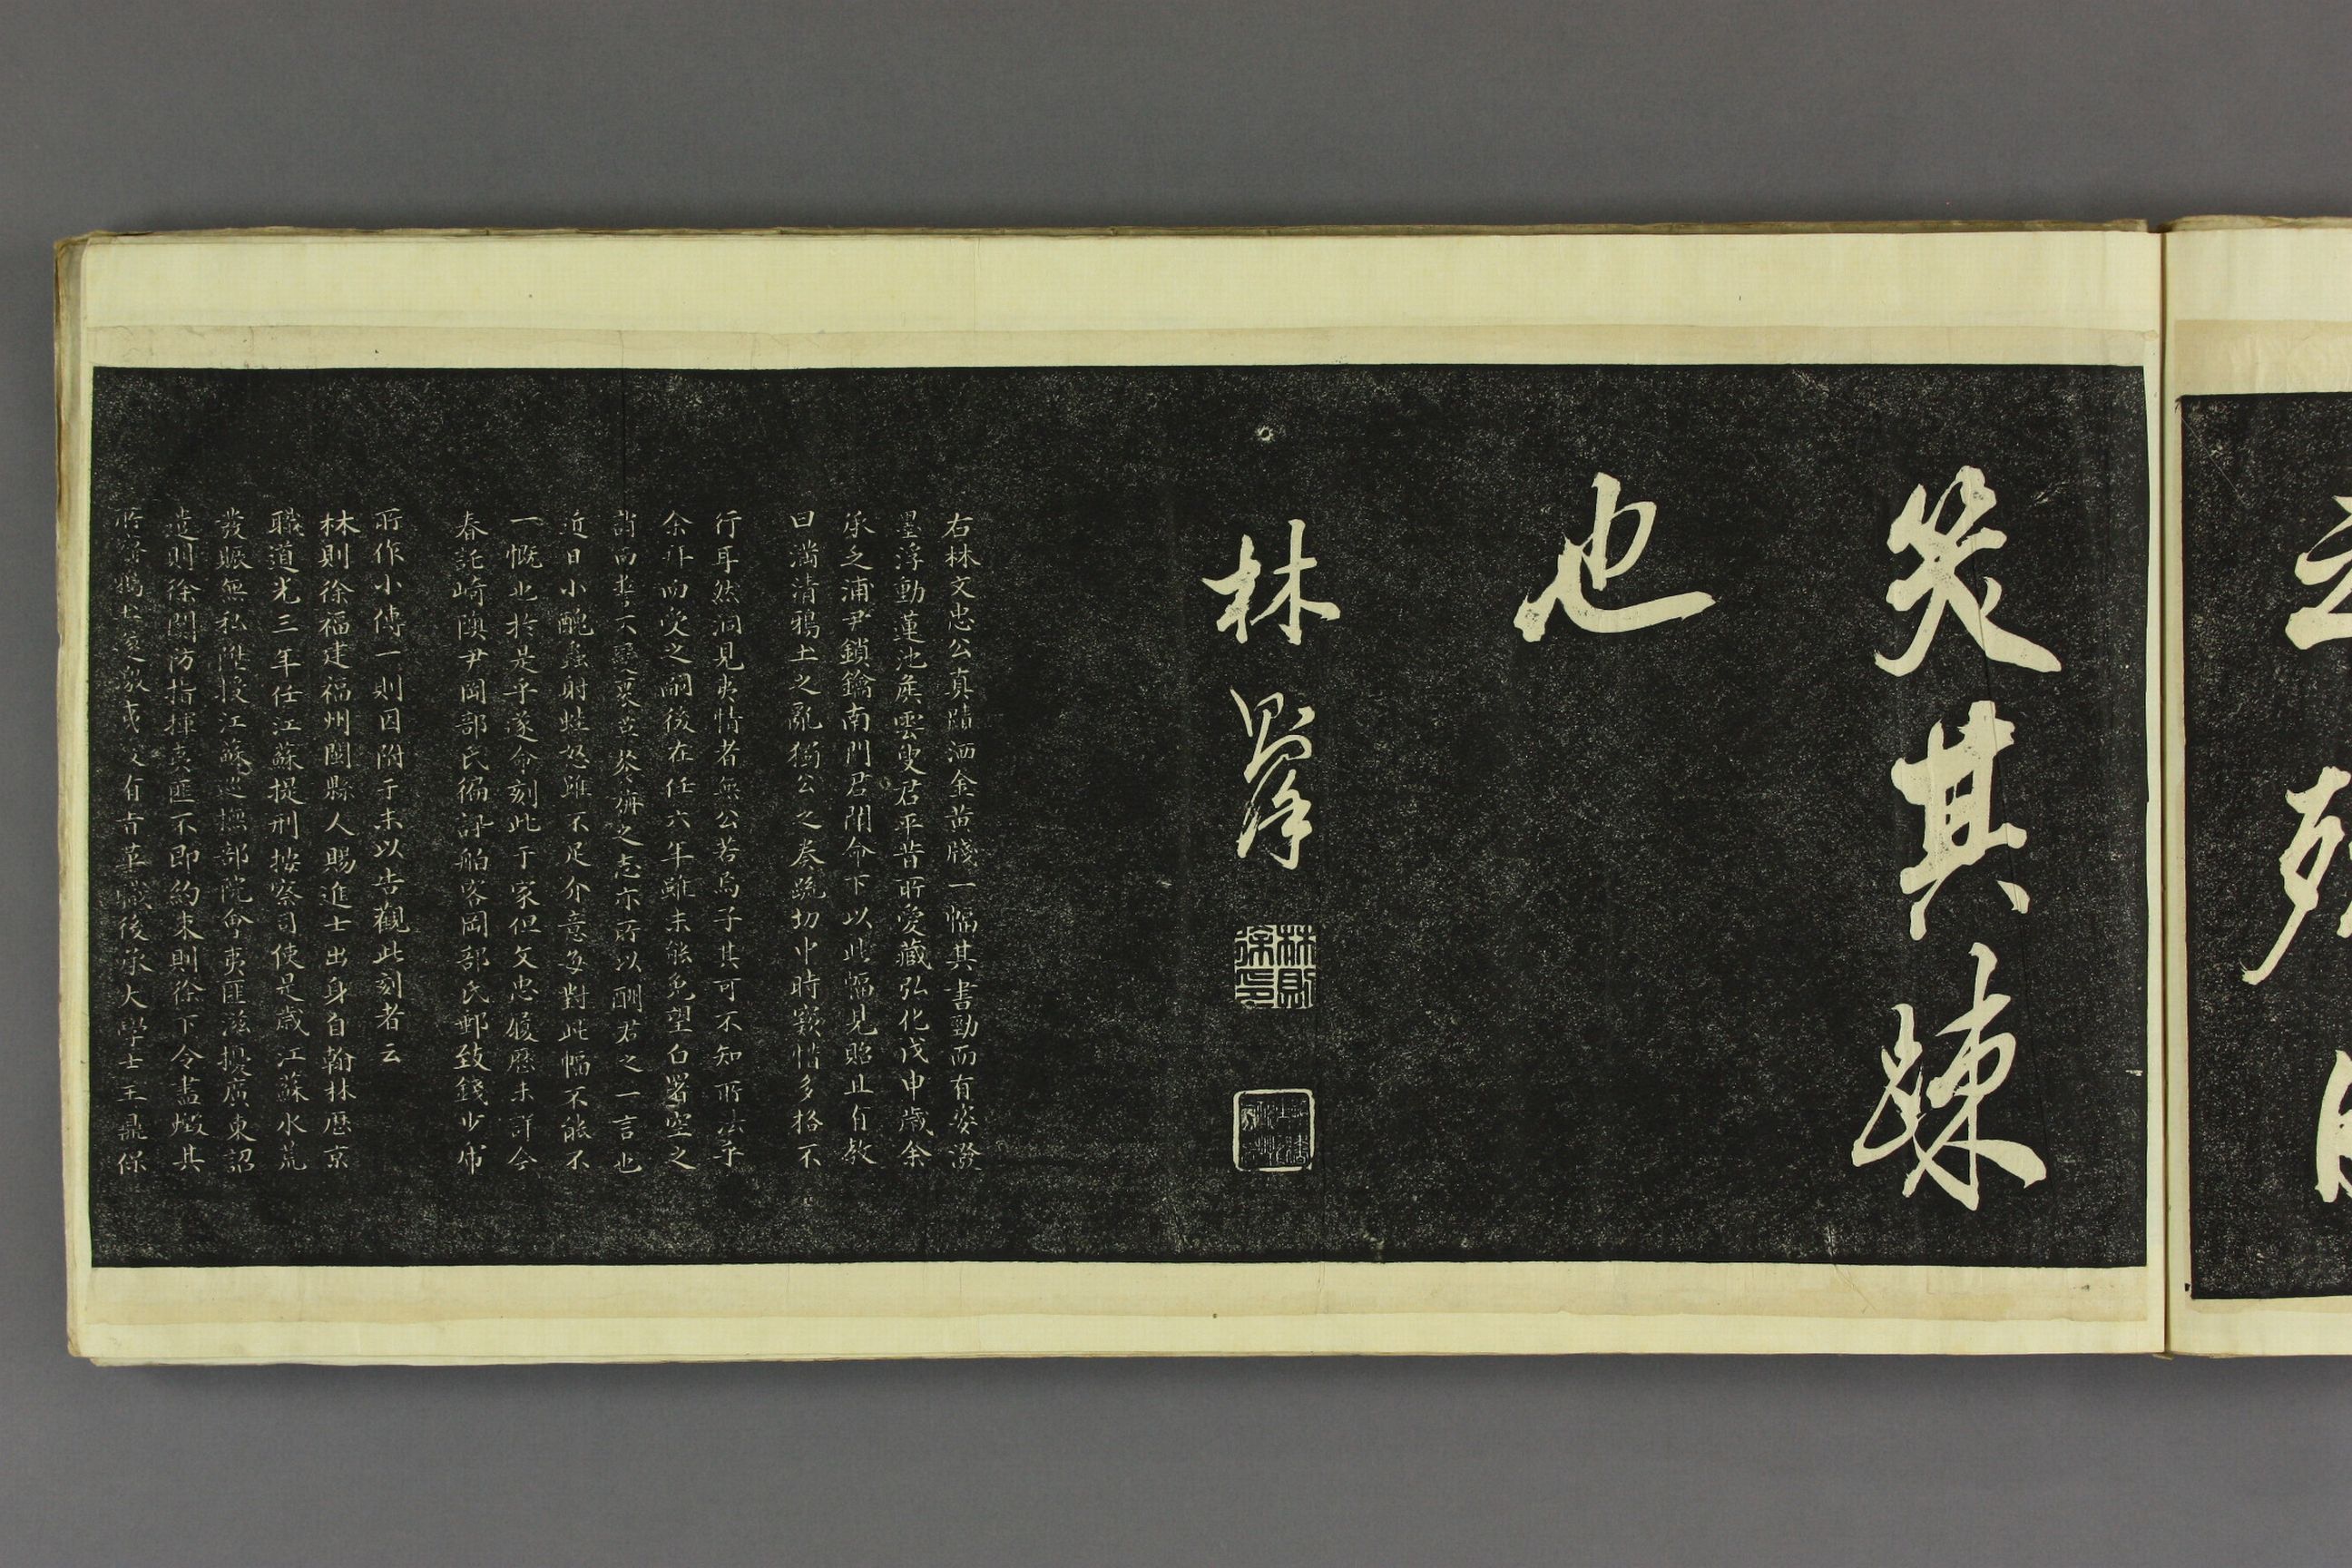 笑其疎
也
林則徐
林則徐印
右林文忠公真蹟洒金黄牋一幅其書勁而有姿潑
墨浮動蓮池矦雲叟君平昔所愛藏弘化戊申歲余
承乏浦尹鎖鑰南門君開命下以此幅見貽且有教
曰滿清鴉土之亂獨公之奏疏切中時竅惜多格不
行耳然洞見夷情者無公若焉子其可不知所法乎
余拜而受之嗣後在任六年雖未能免望白署空之
誚而
之志亦所以酬君之一言也
近日小醜蟲射蛙怒雖不足介意每對此幅不能不
一慨也於是乎遂命刻此于家但文忠履歷未詳今
春託崎陽尹岡部氏徧訊舶客岡部氏郵致錢少虎
所作小傳一則因附于末以告觀此刻者云
林則徐福建福州閩縣人賜進士出身自翰林歷京
職道光三年任江蘇提刑按察司使是歲江蘇水荒
發賑無私陞授江蘇巡撫部院會夷匪滋擾廣東詔
遣則徐關防指揮夷匪不即約束則徐下令盡燬其
所
夷
有旨革職後家大學士王鼎保